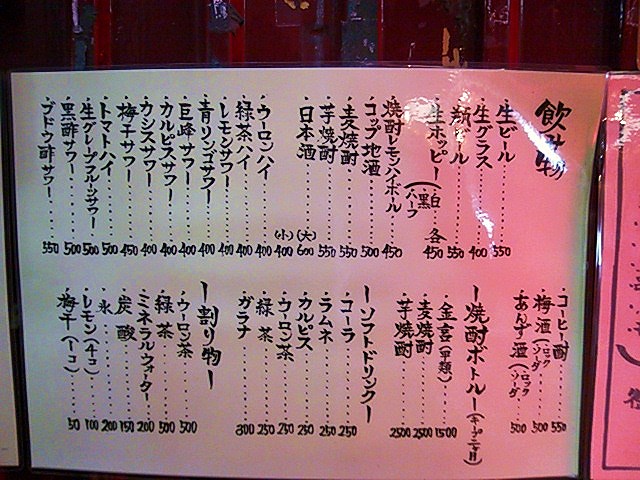 飲み物
生ビール 550
生グラス 400
瓶ビール 550
生ホッピー(白 黒 ハーフ 各450
焼酎レモンハイボール 450
コップ地酒 500
麦焼酎 550
芋焼酎 550
日本酒 (大)600 (小)400
ウーロンハイ 400
緑茶ハイ 400
レモンサワー 400
青リンゴサワー 400
巨峰サワー 400
カルピスサワー 400
カシスサワー 400
梅干サワー 450
トマトハイ 500
生グレープフルーツサワー 500
黒酢サワー 500
ブドウ酢サワー 550
コーヒー酎 550
梅酒(ロック ソーダ 500
あんず酒(ロック ソーダ 500
ー焼酎ボトルー
金宮(甲類) 1500
麦焼酎 2500
芋焼酎 2500
ーソフトドリンクー
コーラ 250
ラムネ 250
カルピス 250
ウーロン茶 250
緑茶 250
ガラナ 300
ー割り物ー
ウーロン茶 500
緑茶 500
ミネラルウォーター 200
炭酸 150
氷 200
レモン(4コ) 100
梅干(1コ) 50